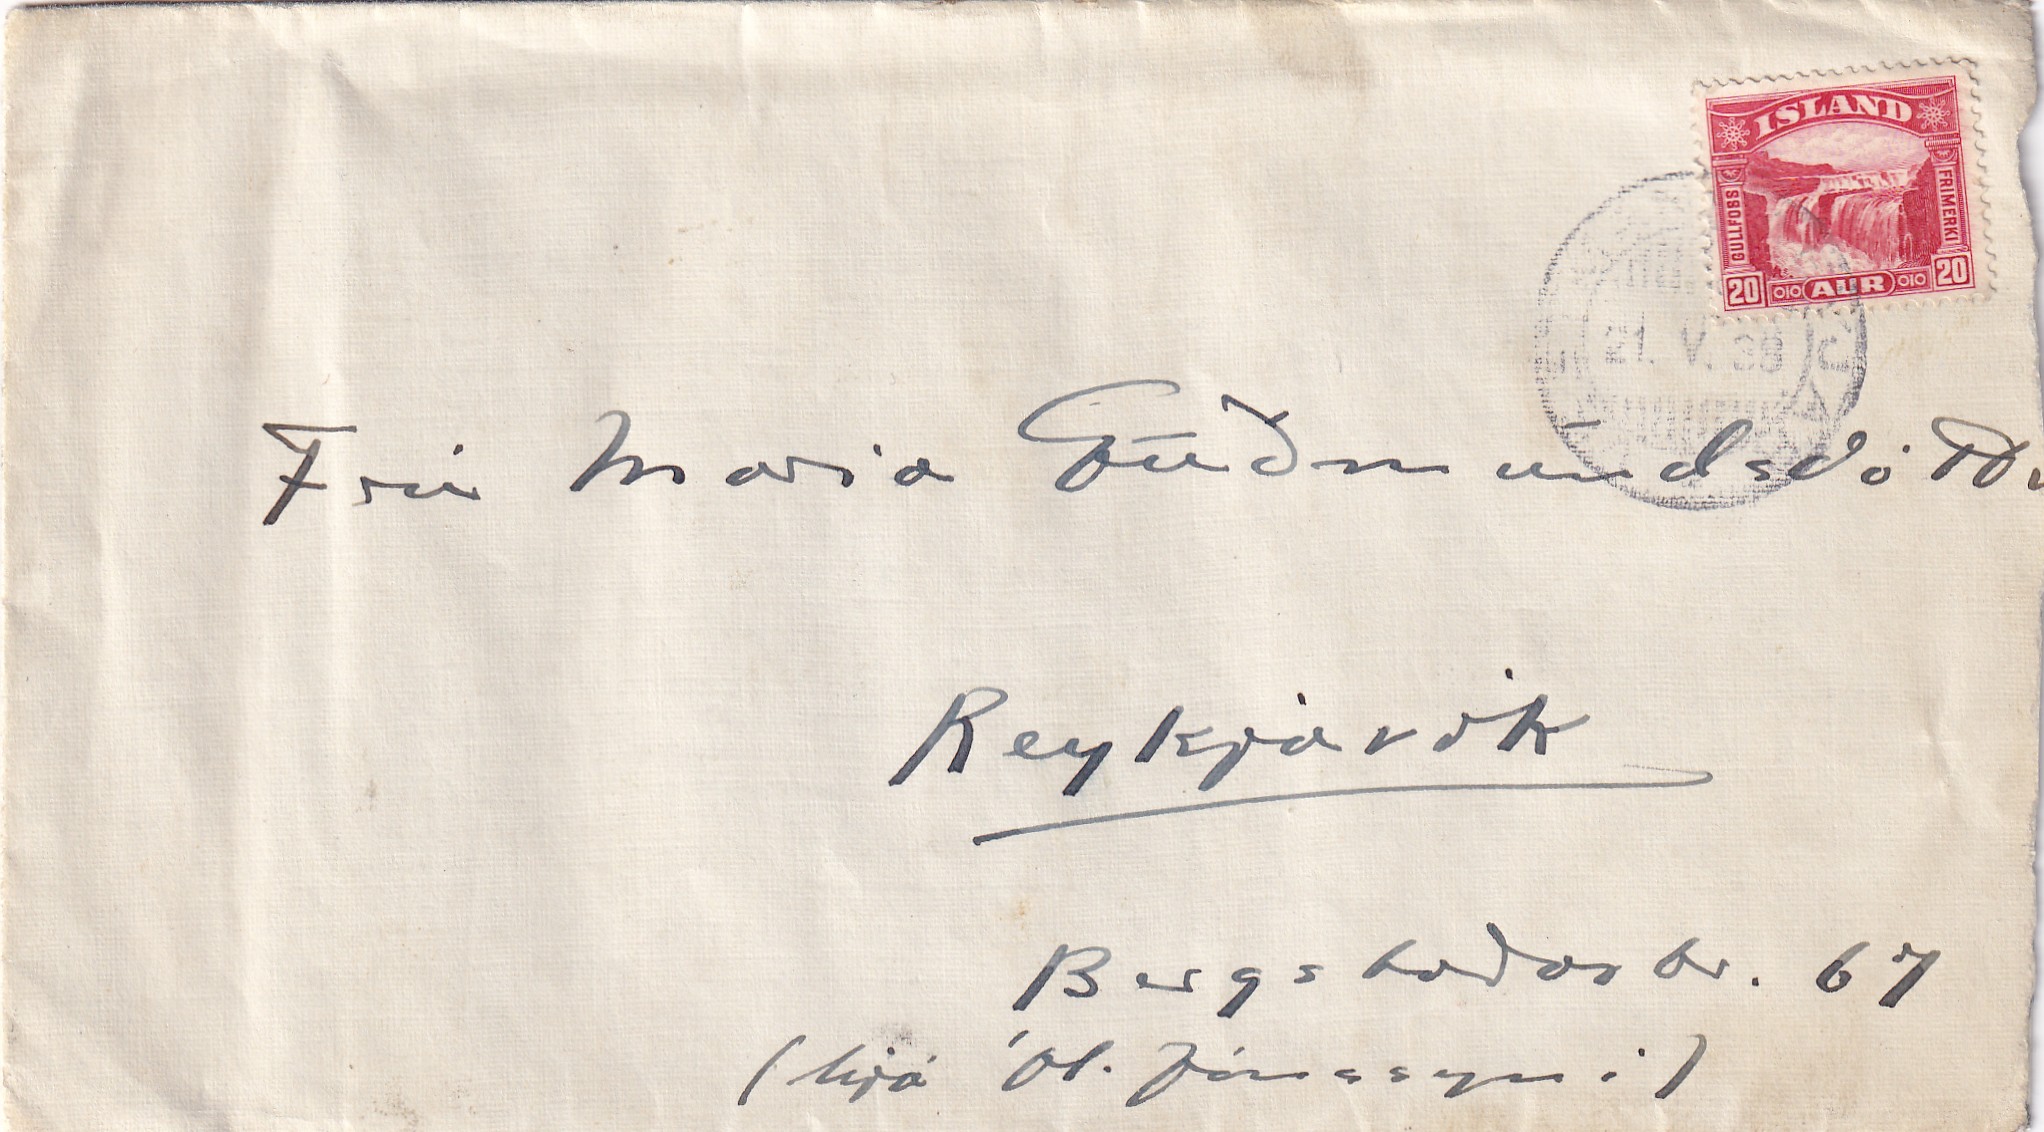 ISLAND
GULLFOSS
FRIMERKI
20 AUR 20
21. V. 38
Frú Maria Guðmundsdóttu
Reykjavík
Bergstaðastr. 67
(hjá Ól. Jónssyni)